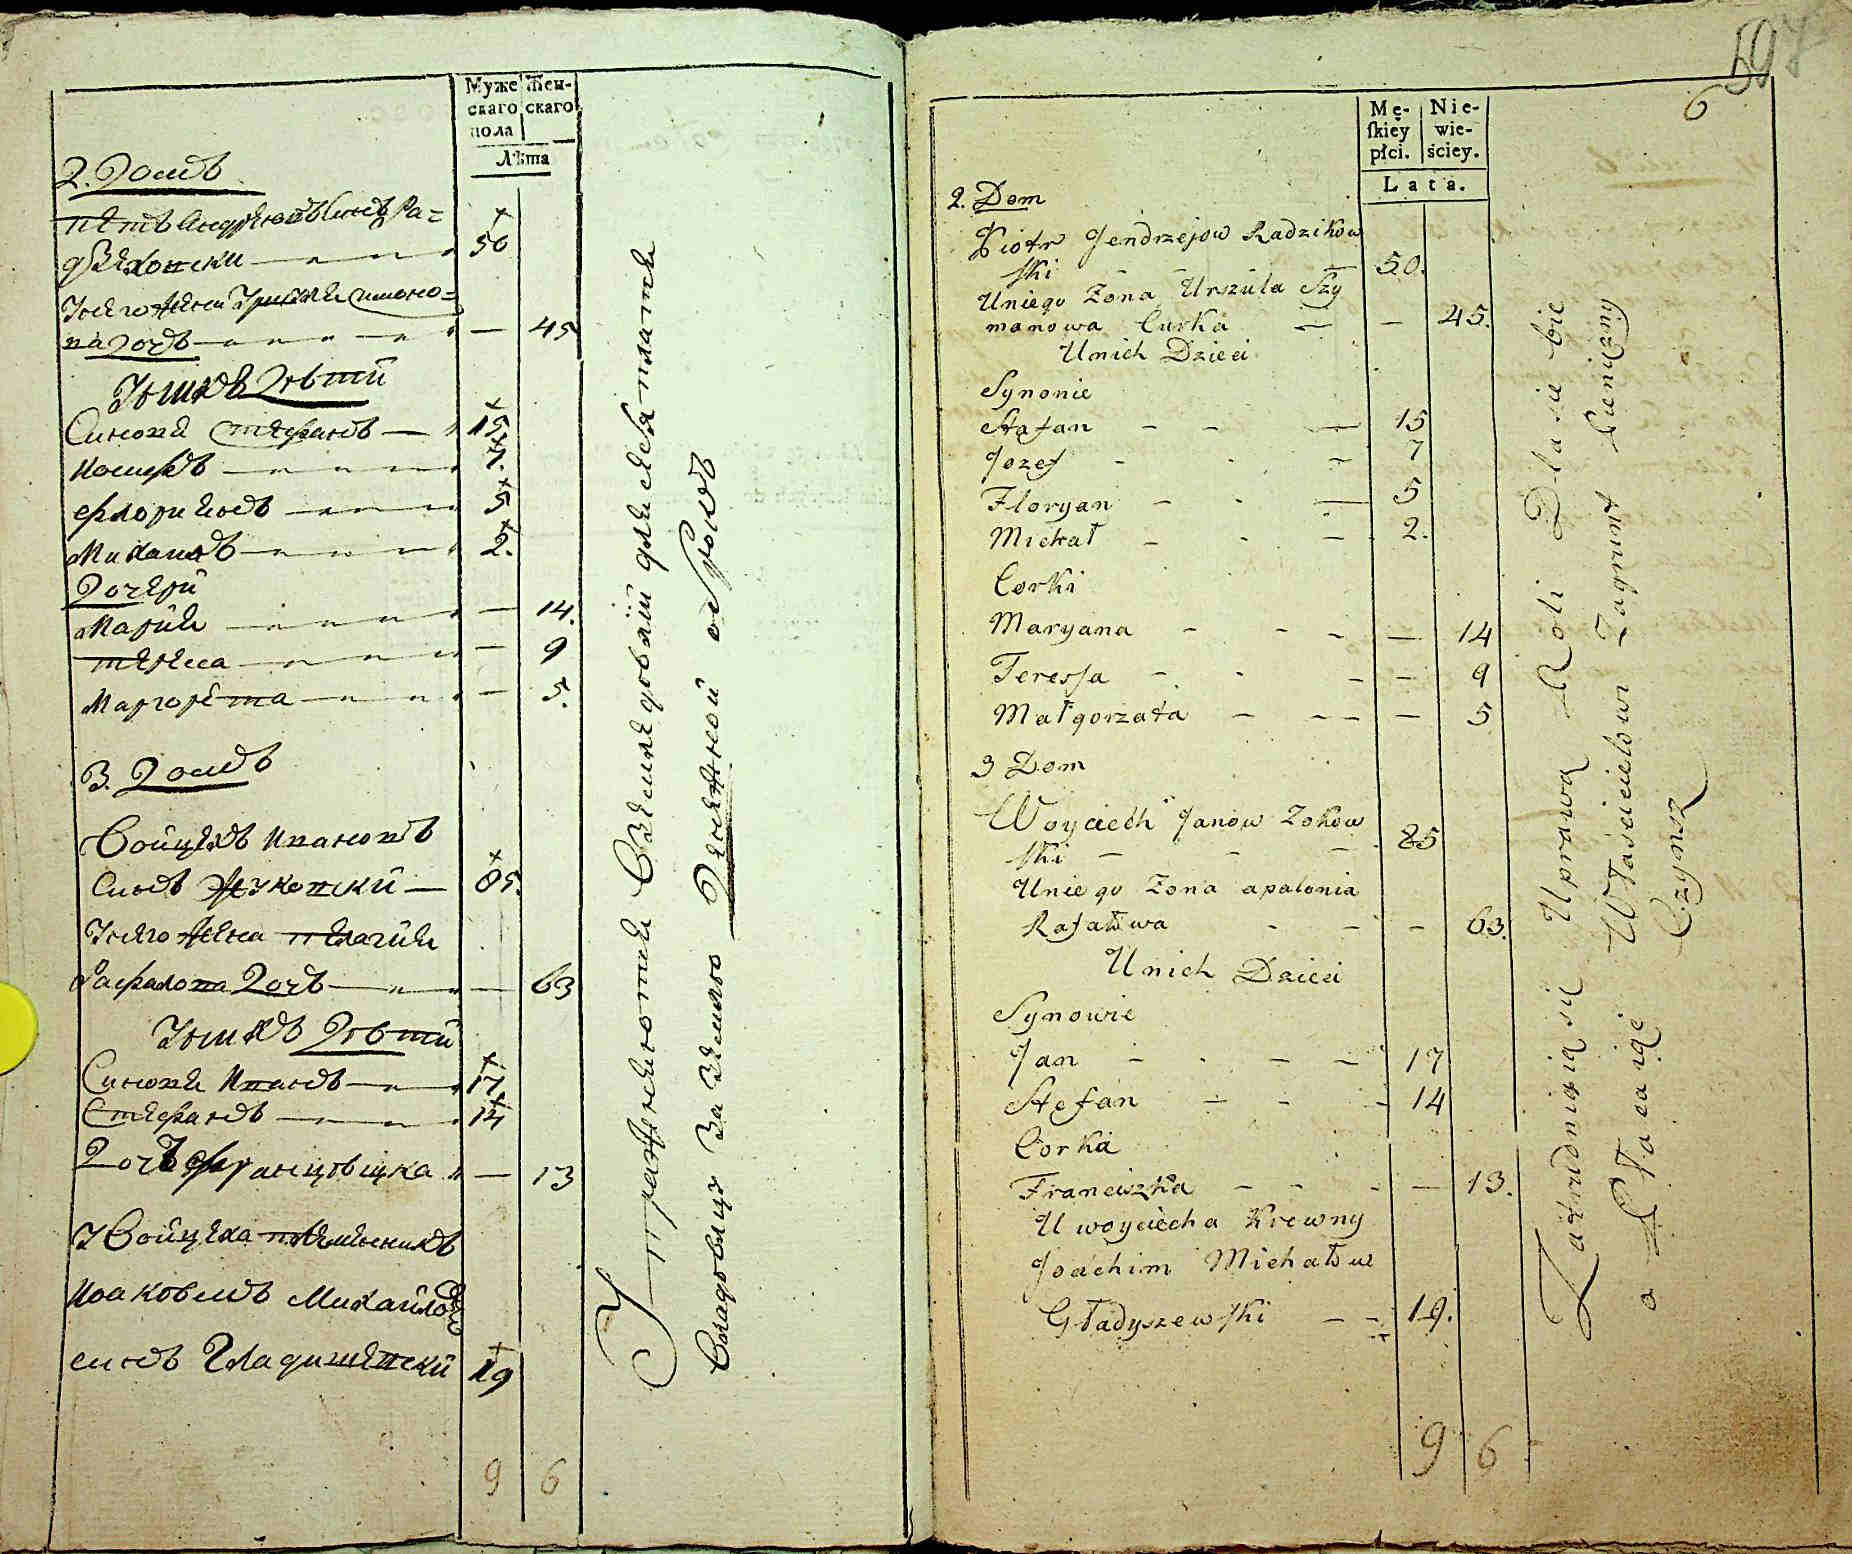 Муже Жен-
скаго скаго
пола
Лѣта
2. Домъ
Петъ Андреювъ синъ Ра=
дзеховски 50
У него жена Уршуля Шимоно=
ва дочъ — 45
У нихъ дѣти
Синовя Стефанъ — 15
Иосифъ 7.
Флориянъ 5
Михаилъ 2.
Дочери
Мария — 14.
Тереса — 9
Маргорета — 5.
3. Домъ
Войцехъ Ивановъ
Синъ Жуковски — 85.
У него жена Пелагия
Рафалова дочъ — 63
У нихъ дѣти
Синовя Иванъ 17
Стефанъ 14
Дочъ Францишка — 13
У Войцеха племенникъ
Иоакобемъ Михайловъ
синъ Гладишевски 19
9 6
Упражняются Землядолѣй для себя платя
Владѣлцу за землю Денежной оброкъ
597
6
Mę- Nie-
ſkiey wie-
płci. ściey.
Lata.
2. Dom
Piotr Jendrzejow Radzikow
ſki — 50.
Uniego Zona Urszula Szy
manowa Curka — — 45.
Unich Dzieci
Synonie
Stafan — — — 15
Jozef — — 7
Floryan — — 5
Michał — — 2.
Corki
Maryana — — — — 14
Teresſa — — — — 9
Małgorzata — — — — 5
3 Dom
Woyciech Janow Zokow
ſki — — — 85
Uniego Zona apalonia
Rafałwa — — — 63.
Unich Dzieci
Synowie
Jan — — — — 17
Stefan — — — 14
Corka
Franciszka — — — — 13.
U woyciecha Krewny
Joachim Michałow
Gładyszewſki — — 19.
9 6
Zatrudniaią się Uprawą Roli Dla sie bie
a Płacaiąc Właścicielowi Zagrunt Pieniężny
Czynsz